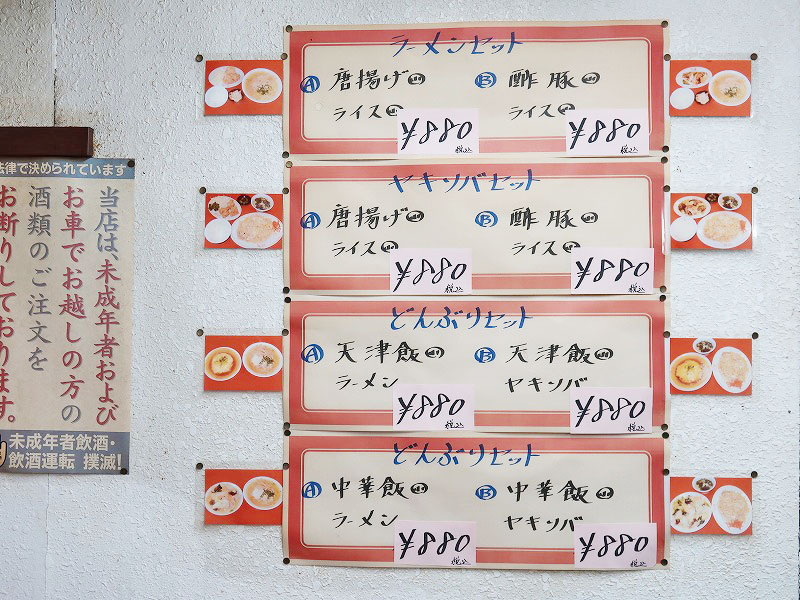 法律で決められています
当店は、未成年者および
お車でお越しの方の
酒類のご注文を
お断りしております。
未成年者飲酒・
飲酒運転 撲滅!
ラーメンセット
Ⓐ 唐揚げ㊀ Ⓑ 酢豚㊀
ライス㊀ ライス㊀
¥880 ¥880
税込 税込
ヤキソバセット
Ⓐ 唐揚げ㊀ Ⓑ 酢豚㊀
ライス㊀ ライス㊀
¥880 ¥880
税込 税込
どんぶりセット
Ⓐ 天津飯㊀ Ⓑ 天津飯㊀
ラーメン ヤキソバ
¥880 ¥880
税込 税込
どんぶりセット
Ⓐ 中華飯㊀ Ⓑ 中華飯㊀
ラーメン ヤキソバ
¥880 ¥880
税込 税込